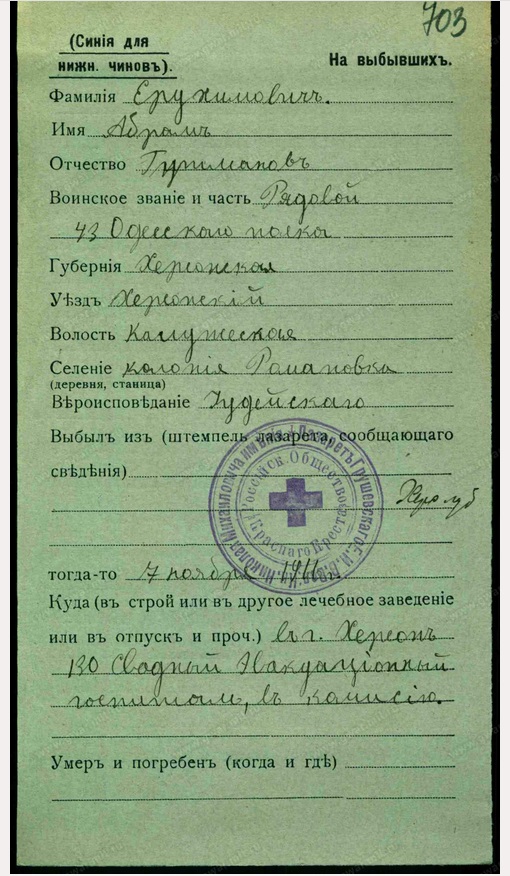 703
(Синія для
нижн. чиновъ).
На выбывшихъ.
Фамилія Ерухимовичъ.
Имя Абрамъ
Отчество
Воинское званіе и часть Рядовой
43 Одесскаго полка
Губернія Херсонская
Уѣздъ Херсонскій
Волость
Селеніе колонія Романовка
(деревня, станица)
Вѣроисповѣданіе Іудейскаго
Выбылъ изъ (штемпель лазарета, сообщающаго
свѣдѣнія)
Россійск. Общество
Краснаго Креста
тогда-то 7 ноября
Куда (въ строй или въ другое лечебное заведеніе
или въ отпускъ и проч.) въ г. Херсонъ
130 Сводный Эвакуаціонный
госпиталь, въ комисію.
Умеръ и погребенъ (когда и гдѣ)